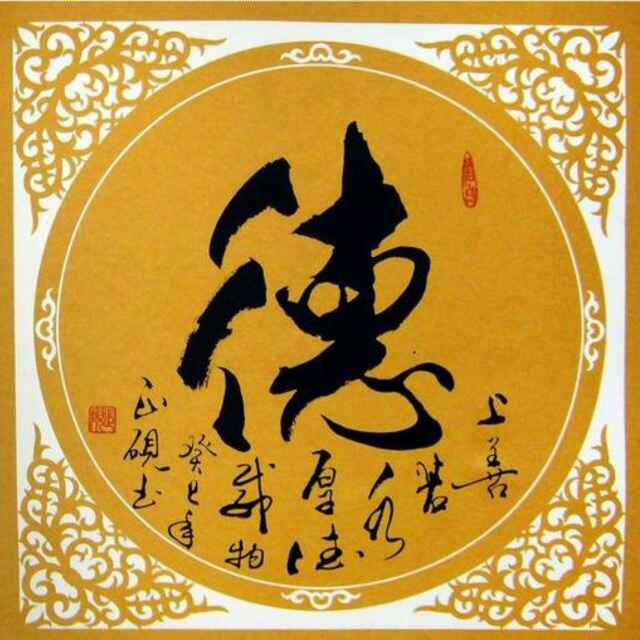 德
上善
若水
厚德
载物
癸巳年
正砚书